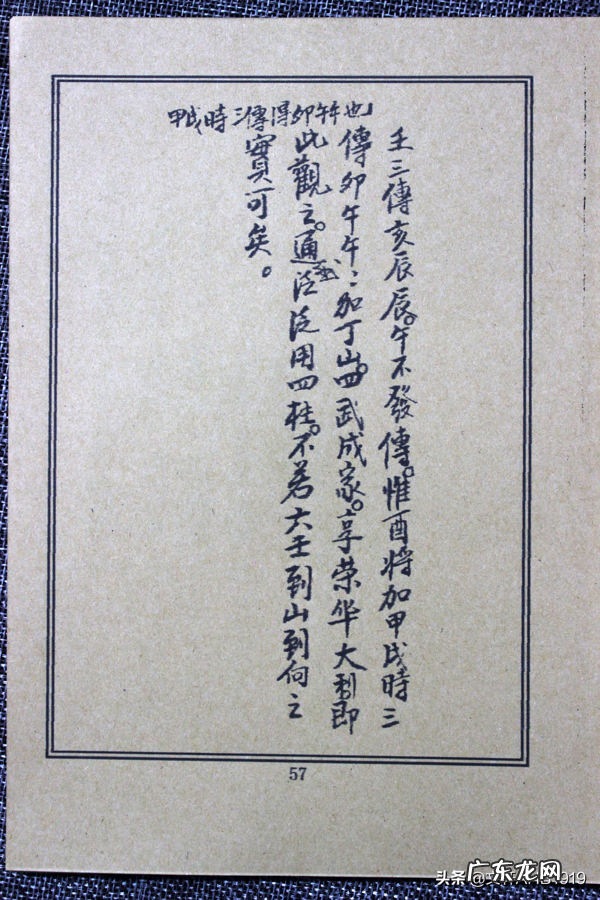 甲戌時三傳得卯午午也
壬三傳亥辰辰。午不發傳。惟酉將加甲戌時三
傳卯午午:加丁山。四武成家。享荣华大利即
此觀之。通泛泛用四柱。不若六壬到山到向之
實可矣。
57
头条
广东龙网